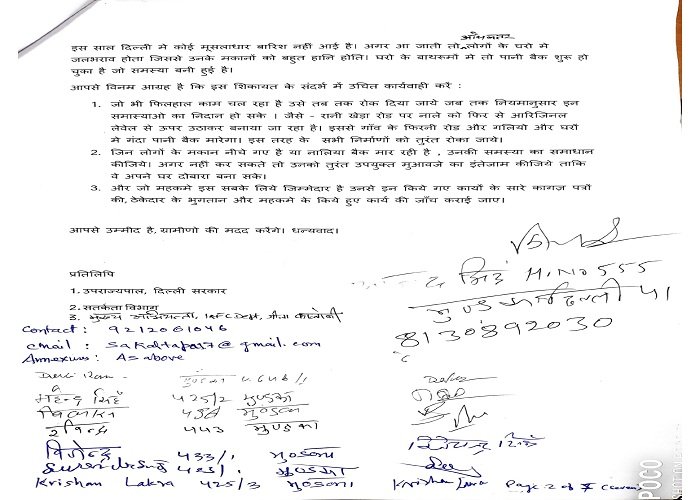 अधिकतर
इस साल दिल्ली मे कोई मूसलाधार बारिश नहीं आई है। अगर आ जाती तो लोगों के घरो मे
जलभराव होता जिससे उनके मकानों को बहुत हानि होती। घरो के बाथरूमों मे तो पानी बैक शुरू हो
चुका है जो समस्या बनी हुई है।
आपसे विनम्र आग्रह है कि इस शिकायत के संदर्भ में उचित कार्यवाही करें :
1. जो भी फिलहाल काम चल रहा है उसे तब तक रोक दिया जाये जब तक नियमानुसार इन
समास्याओ का निदान हो सके । जैसे - रानी खेड़ा रोड पर नाले को फिर से आरिजिनल
लेवेल से ऊपर उठाकर बनाया जा रहा है। इससे गाँव के फिरनी रोड और गलियो और घरों
मे गंदा पानी बैक मारेगा। इस तरह के सभी निर्माणों को तुरंत रोका जाये।
2. जिन लोगों के मकान नीचे गए है या नालिया बैक मार रही है , उनकी समस्या का समाधान
कीजिये। अगर नहीं कर सकते तो उनको तुरंत उपयुक्त मुआवजे का इंतेजाम कीजिये ताकि
वे अपने घर दोबारा बना सके।
3. और जो महकमे इस सबके लिये जिम्मेदार है उनसे इन किये गए कार्यो के सारे कागज़ पत्रों
की, ठेकेदार के भुगतान और महकमे के किये हुए कार्य की जाँच कराई जाए।
आपसे उम्मीद है, ग्रामीणो की मदद करेंगे। धन्यवाद।
प्रतिलिपि
1. उपराज्यपाल, दिल्ली सरकार
2. सतर्कता विभाग
3. मुख्य अभियन्ता, I&FC Deptt,
सिंह H.No 555
81
8130892030
Contact : 9212061046
email : @gmail.com
Annexures : As above
महेन्द्र सिंह 425/2 मुण्डका
436 मुण्डका
रविन्द्र 443 मुण्डका
विजेन्द्र 433/1 मुण्डका
मुण्डका
Krishan Lakra 425/3 मुण्डका Krishan Lakra Page 2 of 7 (seven)
POCO